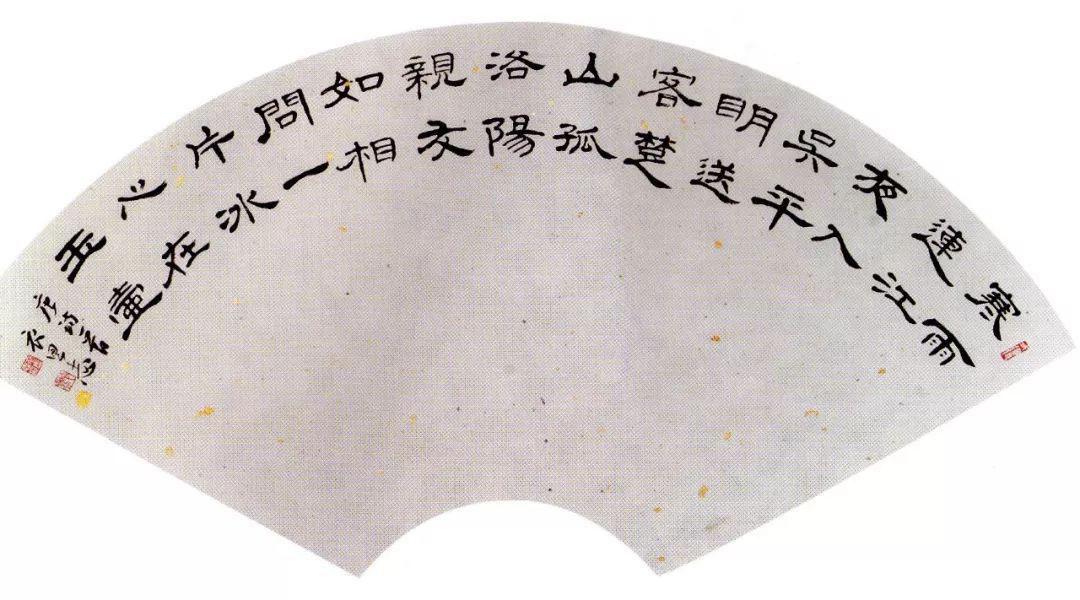 寒雨
連江
夜入
吳平
明送
客楚
山孤
洛陽
親友
如相
問一
片冰
心在
玉壺